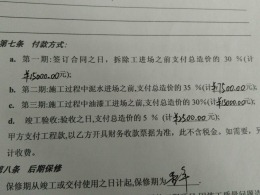 第七条 付款方式:
a. 第一期:签订合同之日,拆除工进场之前支付总造价的 30 %(计
¥15000.00元);
b. 第二期:施工过程中泥水进场之前,支付总造价的 35 %(计¥17500.00元);
c. 第三期:施工过程中油漆工进场之前,支付总造价的30%(计¥15000.00元);
d. 竣工验收:验收之日,支付总造价的 5 %(计¥2500.00元);
甲方支付工程款,以乙方开具财务收款票据为准,此不含税金。如需要,另
计收费。
第八条 后期保修
保修期从竣工或交付使用之日计起,保修期为 年